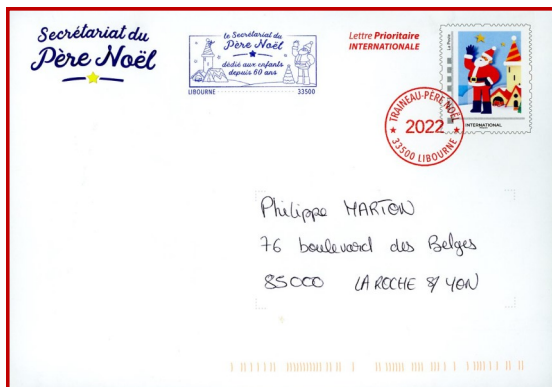 Secrétariat du
Père Noël
le Secrétariat du
Père Noël
dédié aux enfants
depuis 60 ans
LIBOURNE 33500
Lettre Prioritaire
INTERNATIONALE
La Poste
INTERNATIONAL
TRAINEAU-PÈRE NOËL
2022
33500 LIBOURNE
Philippe MARTON
76 boulevard des Belges
85000 LA ROCHE S/ YON